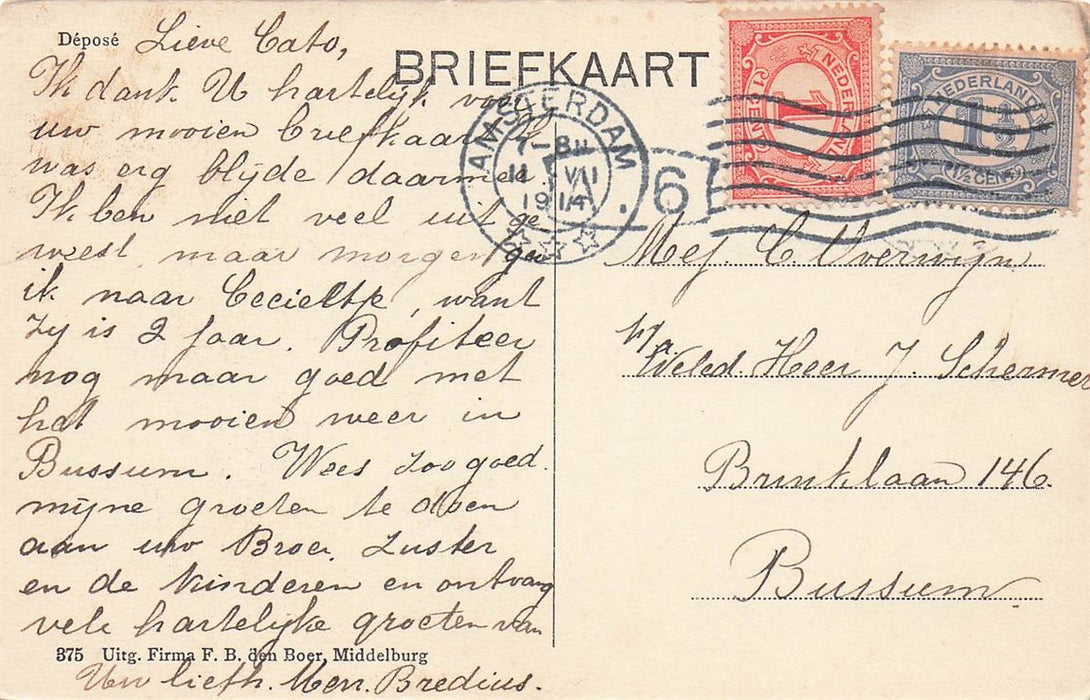 Déposé
Lieve Cato,
BRIEFKAART
Ik dank U hartelijk voor
uw mooien briefkaart
was erg blijde daarmee
Ik ben niet veel uit ge
weest maar morgen ga
ik naar Cecieltje, want
Zy is 2 jaar. Profiteer
nog maar goed met
het mooien weer in
Bussum. Wees zoo goed.
mijne groeten te doen
aan uw Broer, Zuster
en de kinderen en ontvang
vele hartelijke groeten van
375 Uitg. Firma F. B. den Boer, Middelburg
Uw liefh. Bredius.
AMSTERDAM
7-8
11 VII
1914
6
NEDERLAND
1
1 CENT
NEDERLAND
1½
1½ CENT
Mej C. Overwijn
p/a
Weled Heer J. Schermer
Brinklaan 146.
Bussum